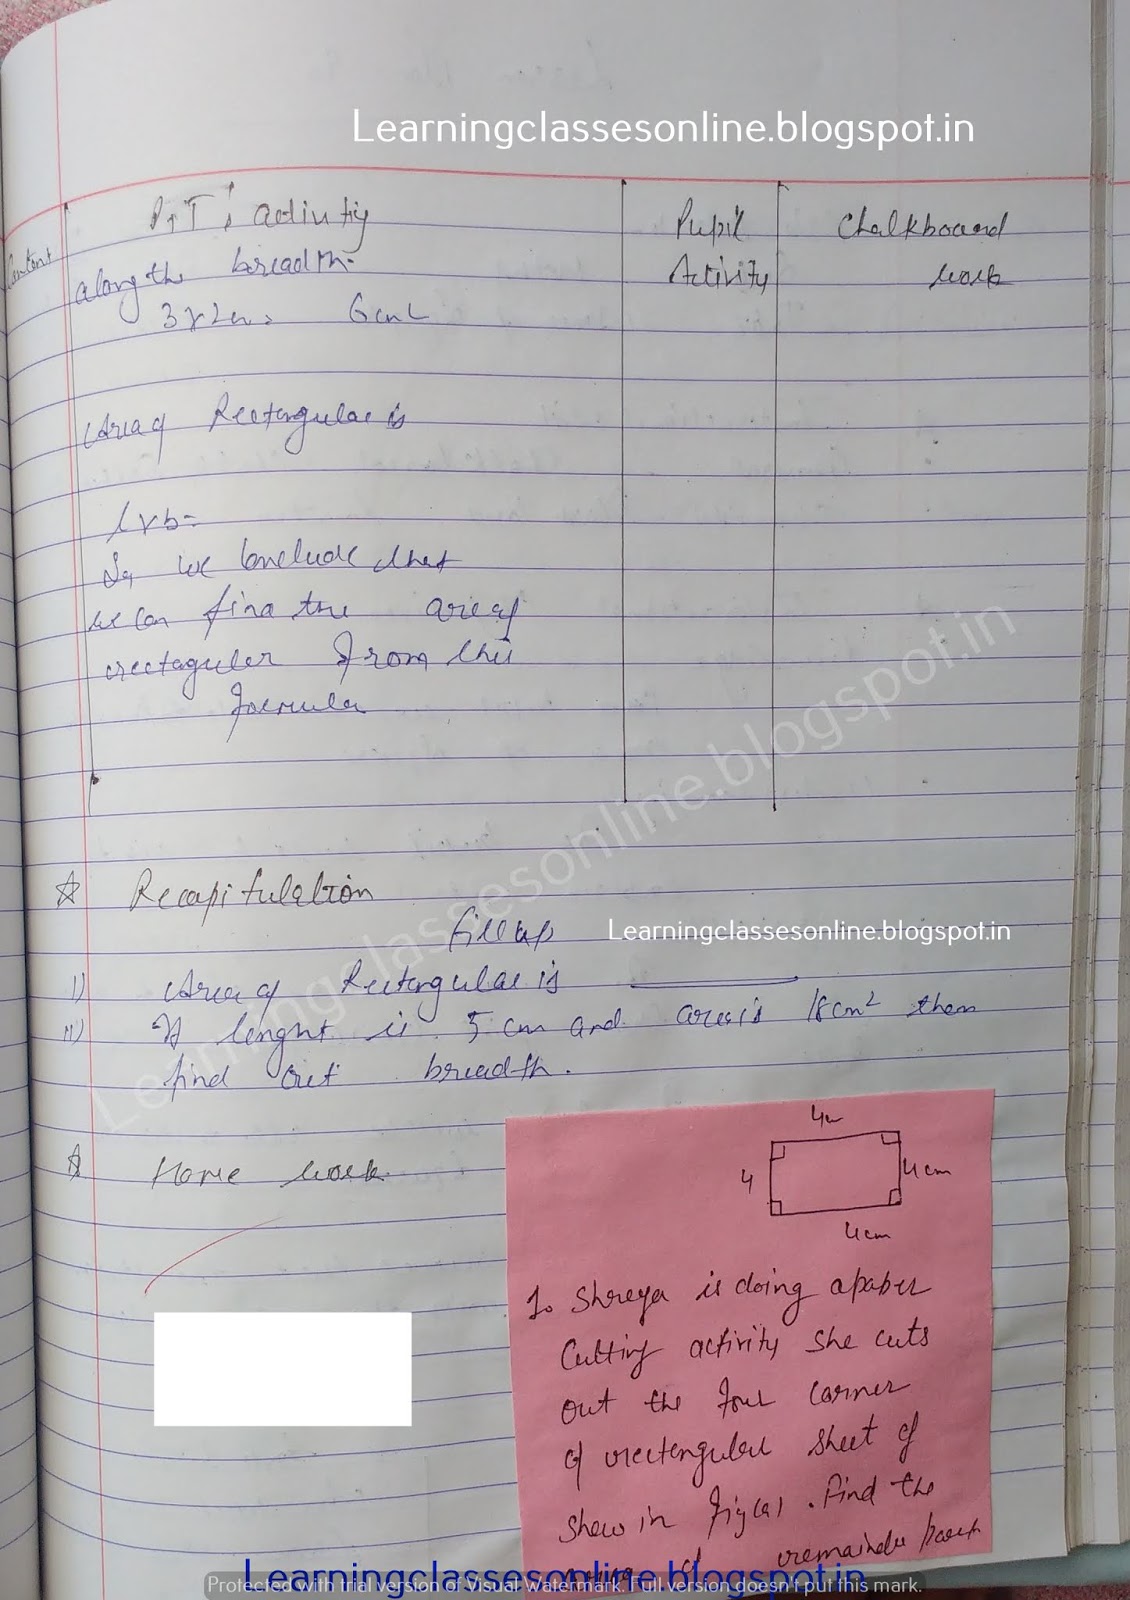 Learningclassesonline.blogspot.in
Content
P.T's activity
Pupil
Activity
Chalkboard
work
along the breadth.
3x2cm = 6cm
Area of Rectangular is
lxb=
So we conclude that
we can find the area of
rectaguler From this
Formula
Recapitulation
fill up
Learningclassesonline.blogspot.in
i) Area of Rectangular is
ii) If lenght is 5 cm and area is 18cm² then
find out breadth.
Learningclassesonline.blogspot.in
Home work
4
4
4cm
4cm
1. Shreya is doing a paper
Cutting activity she cuts
out the four corner
of rectanguler sheet of
show in Fig(a). Find the
remainder part
Learningclassesonline.blogspot.in
Protected with trial version of Visual Watermark. Full version doesn't put this mark.